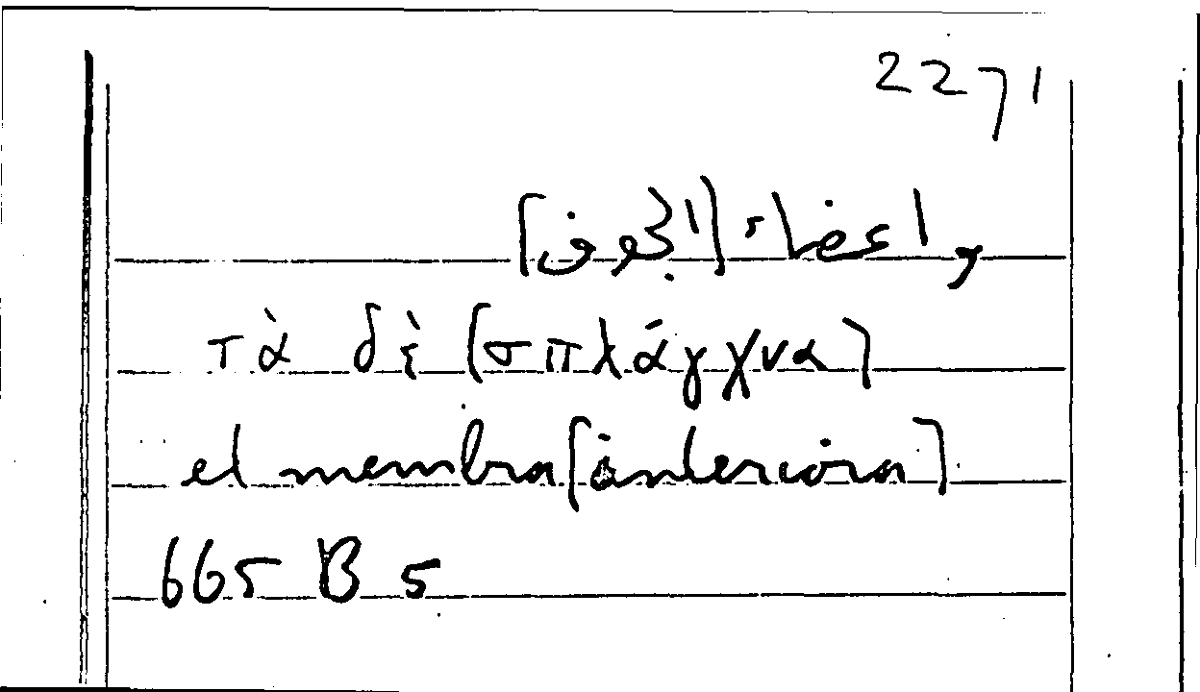 2271
واعضاء [الجوف]
τὰ δὲ [σπλάγχνα]
et membra [interiora]
665 B 5